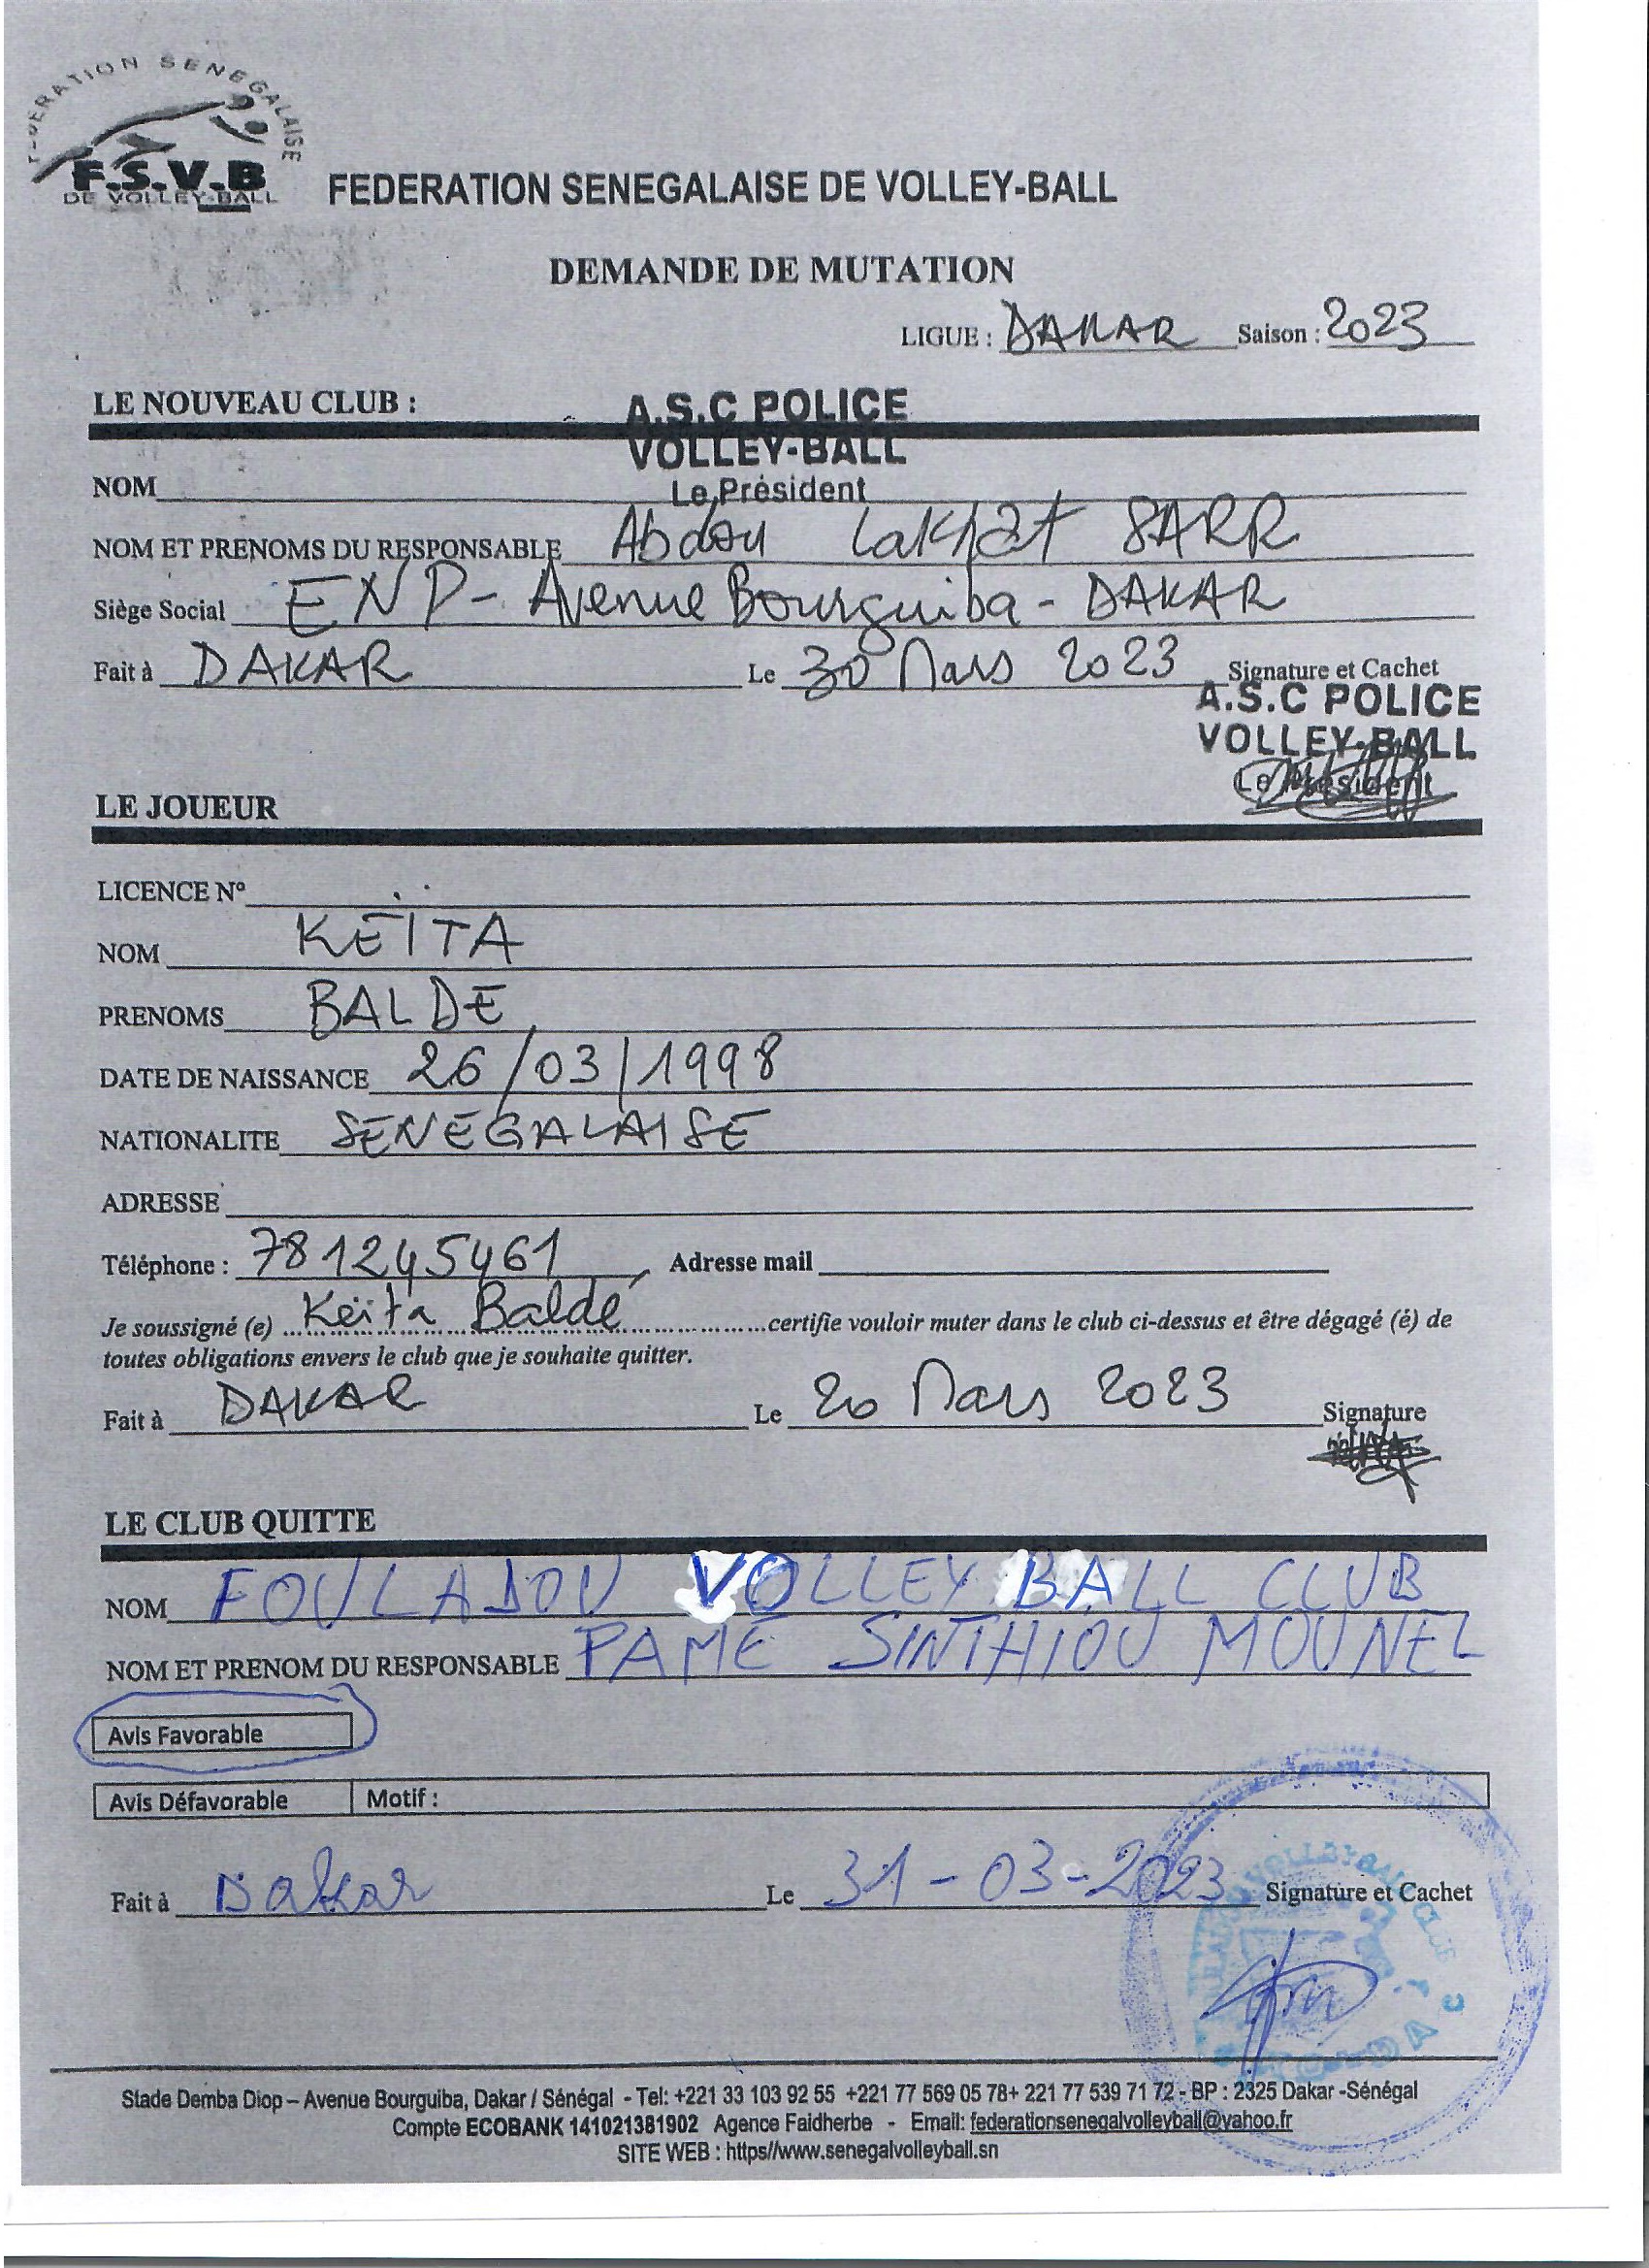 FEDERATION SENEGALAISE
F.S.V.B
DE VOLLEY-BALL
FEDERATION SENEGALAISE DE VOLLEY-BALL
DEMANDE DE MUTATION
LIGUE : DAKAR Saison : 2023
LE NOUVEAU CLUB :
A.S.C POLICE
VOLLEY-BALL
Le Président
NOM
NOM ET PRENOMS DU RESPONSABLE Abdou Lakhat SARR
Siège Social ENP- Avenue Bourguiba - DAKAR
Fait à DAKAR Le 30 Mars 2023 Signature et Cachet
A.S.C POLICE
VOLLEY-BALL
Le Président
LE JOUEUR
LICENCE N°
NOM KEÏTA
PRENOMS BALDE
DATE DE NAISSANCE 26/03/1998
NATIONALITE SENEGALAISE
ADRESSE
Téléphone : 781245461 Adresse mail
Je soussigné (e) Keïta Baldé certifie vouloir muter dans le club ci-dessus et être dégagé (é) de
toutes obligations envers le club que je souhaite quitter.
Fait à DAKAR Le 20 Mars 2023 Signature
LE CLUB QUITTE
NOM FOULADOU VOLLEY BALL CLUB
NOM ET PRENOM DU RESPONSABLE PAMÉ SINTHIOU MOUNEL
Avis Favorable
Avis Défavorable Motif :
Fait à Dakar Le 31-03-2023 Signature et Cachet
Stade Demba Diop – Avenue Bourguiba, Dakar / Sénégal - Tel: +221 33 103 92 55 +221 77 569 05 78+ 221 77 539 71 72 - BP : 2325 Dakar -Sénégal
Compte ECOBANK 141021381902 Agence Faidherbe - Email: federationsenegalvolleyball@yahoo.fr
SITE WEB : https//www.senegalvolleyball.sn